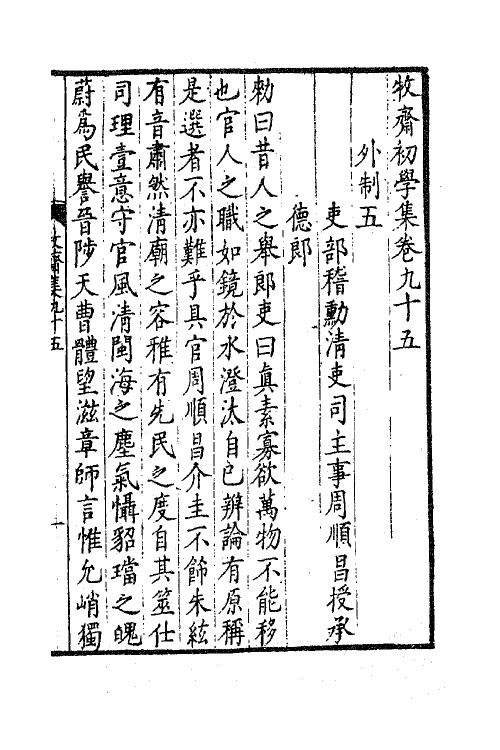 牧齋初學集卷九十五
外制五
吏部稽勳清吏司主事周順昌授承
德郎
勑曰昔人之舉郎吏曰真素寡欲萬物不能移
也官人之職如鏡於水澄汰自已辨論有原稱
是選者不亦難乎具官周順昌介圭不飾朱絃
有音肅然清廟之容雅有先民之度自其筮仕
司理壹意守官風清閩海之塵氣懾貂璫之魄
蔚爲民譽晉陟天曹體望滋章師言惟允峭獨
牧齋集九十五
一